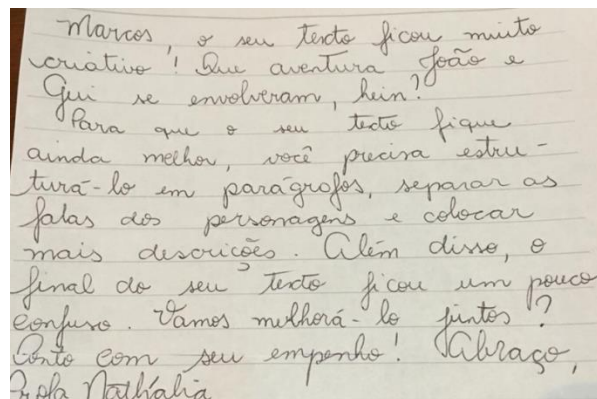 Marcos, o seu texto ficou muito
criativo! Que aventura João e
Gui se envolveram, hein?
Para que o seu texto fique
ainda melhor, você precisa estru-
turá-lo em parágrafos, separar as
falas dos personagens e colocar
mais descrições. Além disso, o
final do seu texto ficou um pouco
confuso. Vamos melhorá-lo juntos?
Conto com seu empenho! Abraço,
Profa Nathália